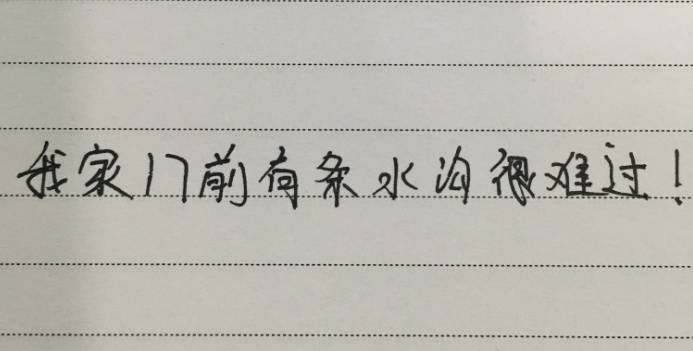 我家门前有条水沟很难过！